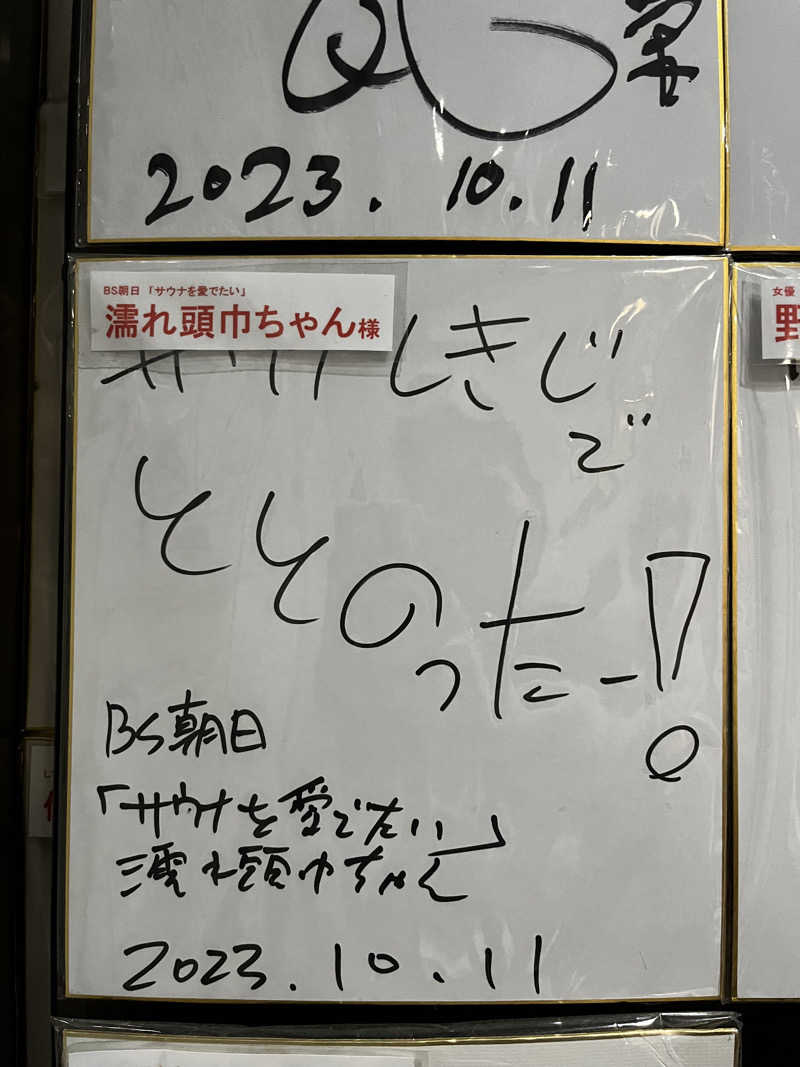 2023.10.11
BS朝日 「サウナを愛でたい」
濡れ頭巾ちゃん様
サウナしきじ
で
ととのったー!
BS朝日
「サウナを愛でたい」
濡れ頭巾ちゃん
2023.10.11
女優
野